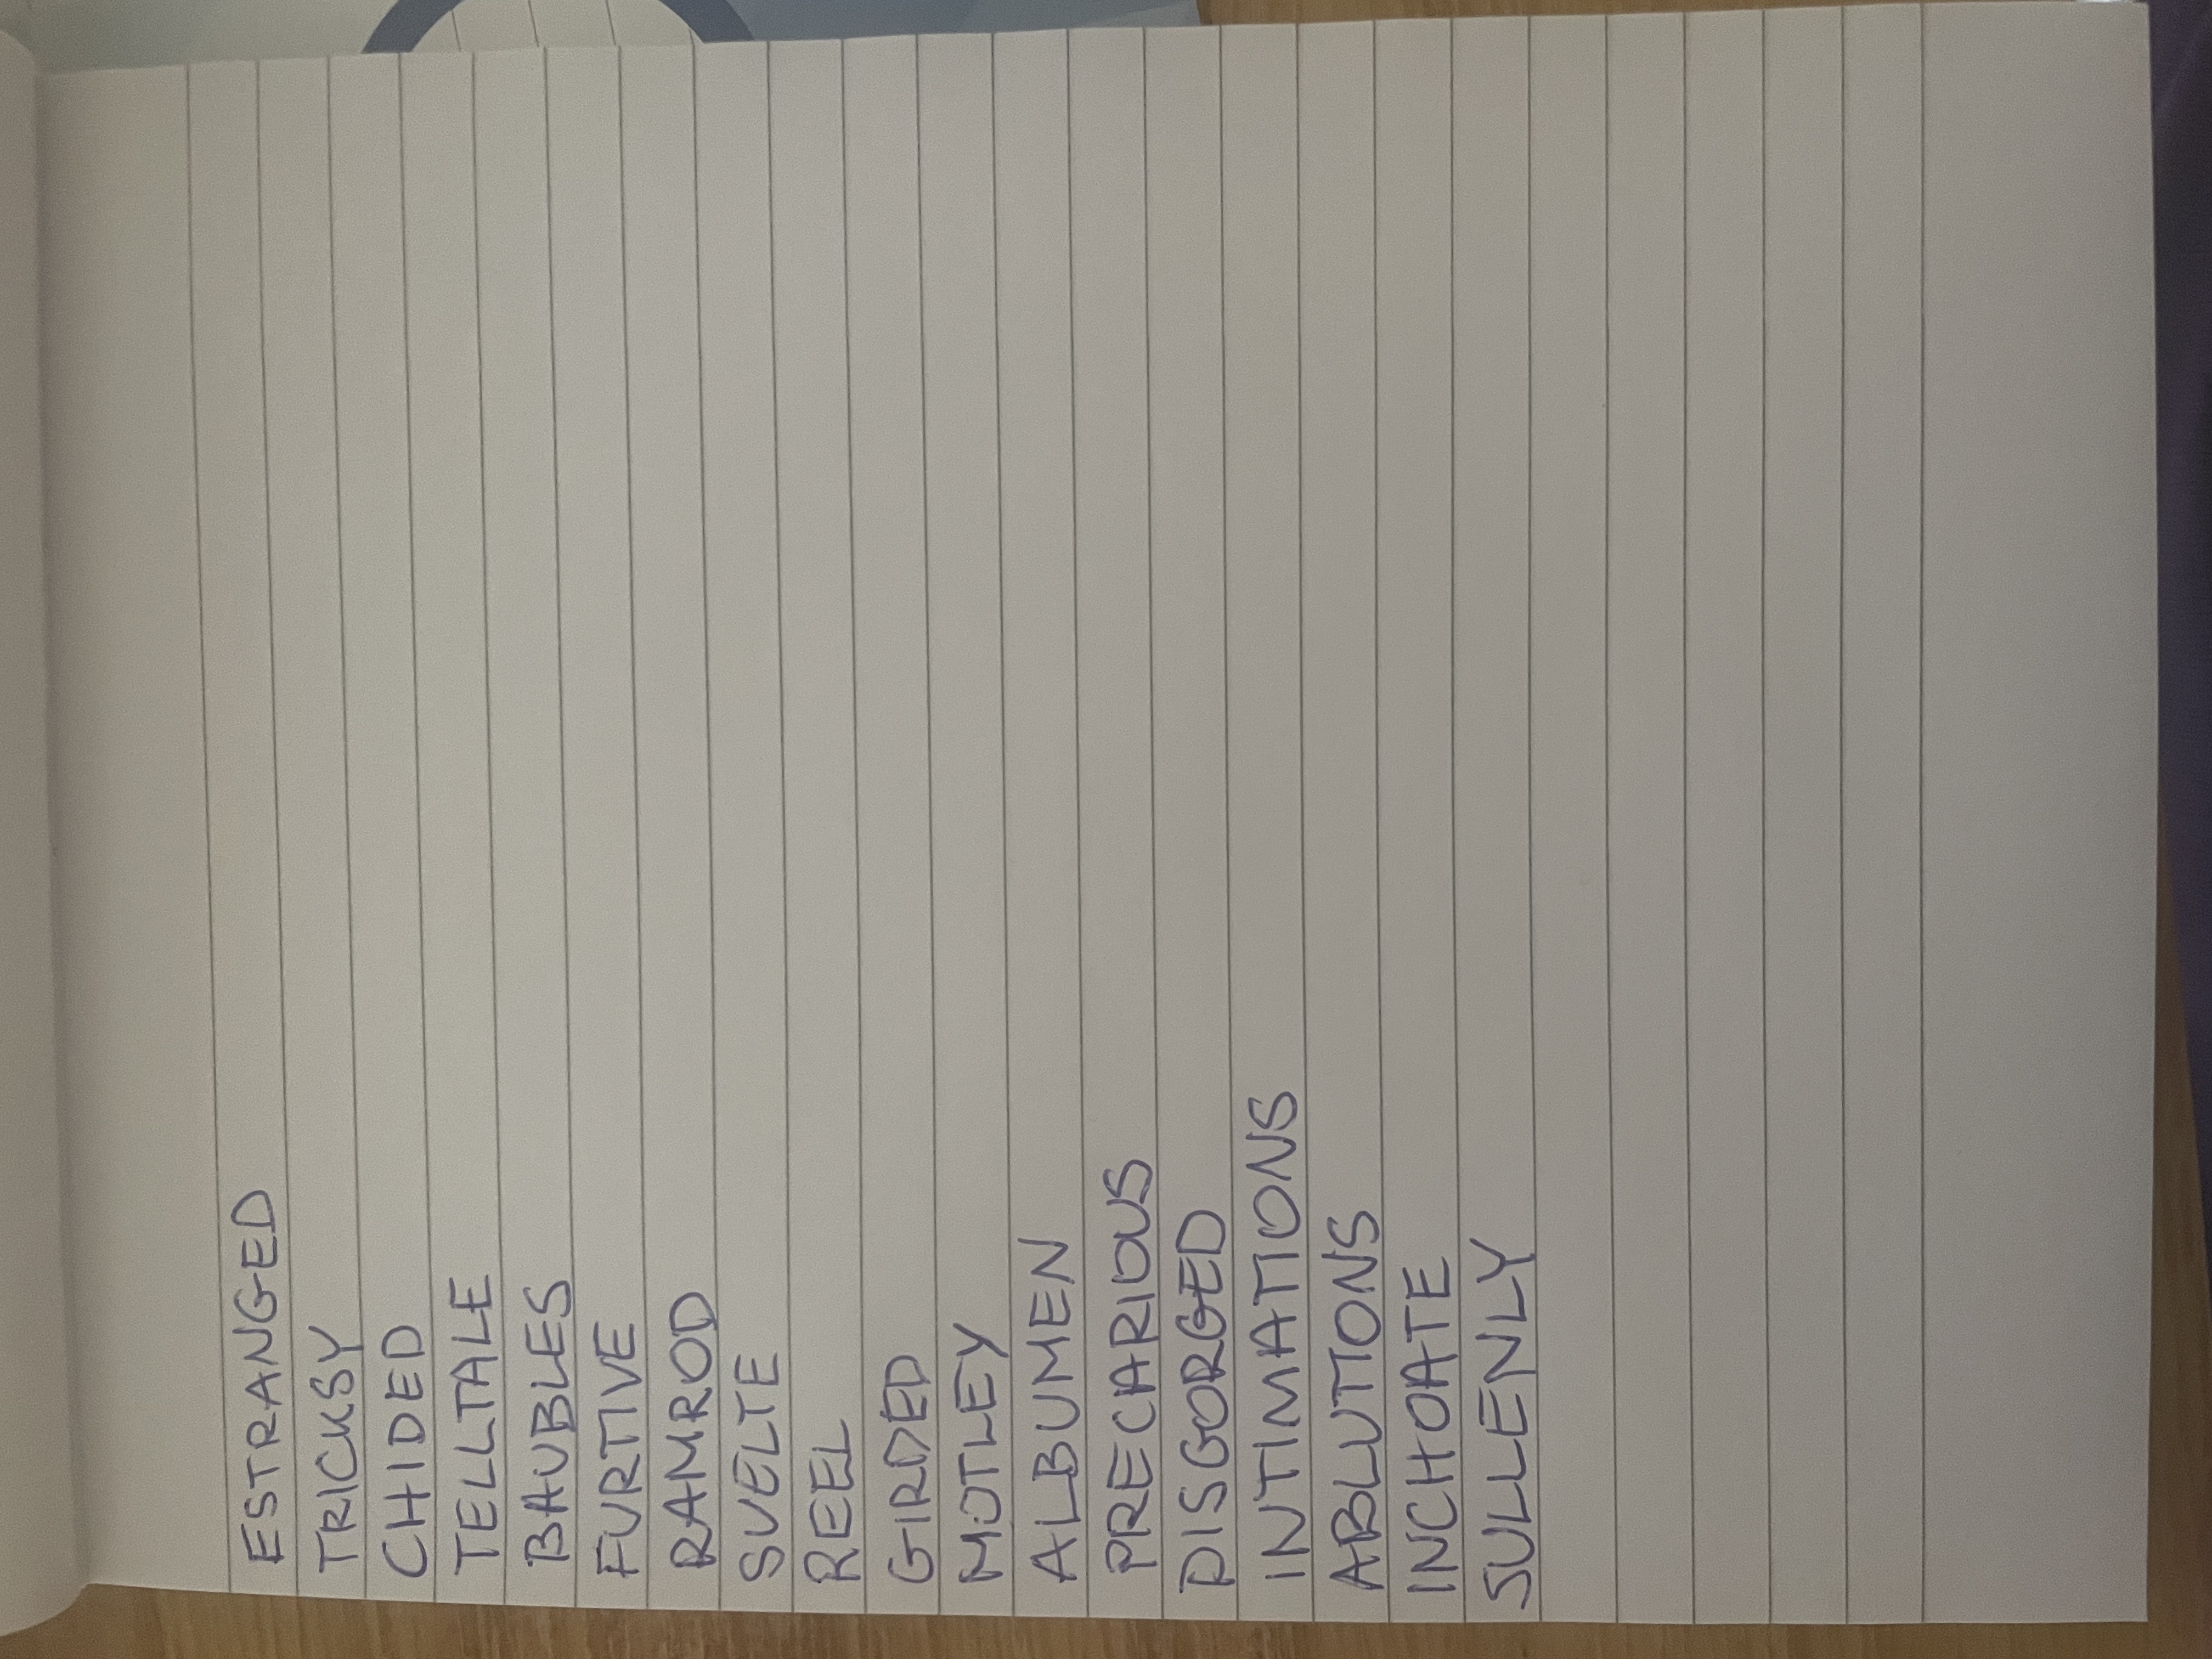 ESTRANGED
TRICKSY
CHIDED
TELLTALE
BAUBLES
FURTIVE
RAMROD
SVELTE
REEL
GIRDED
MOTLEY
ALBUMEN
PRECARIOUS
DISGORGED
INTIMATIONS
ABLUTIONS
INCHOATE
SULLENLY